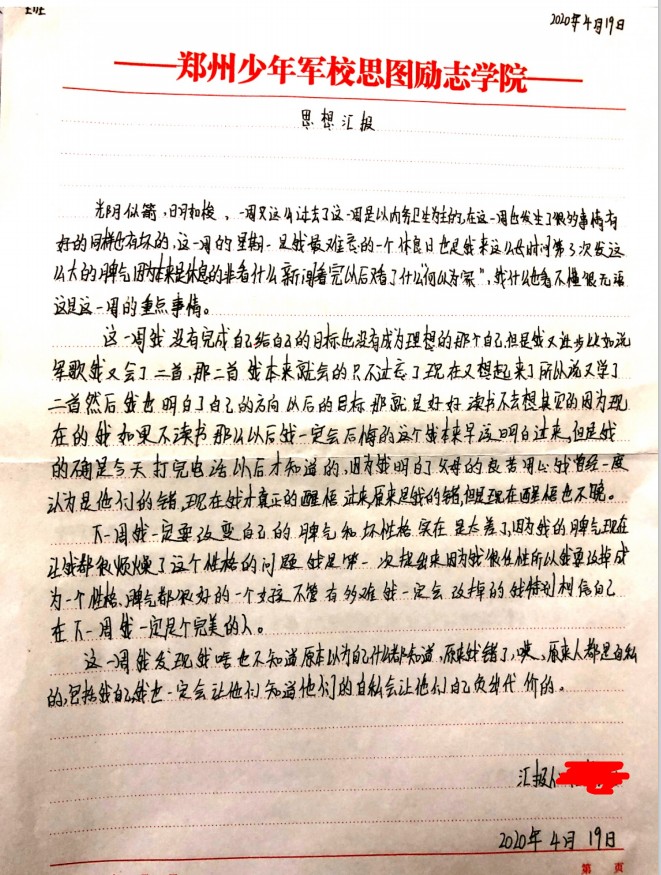 班
2020年4月19日
——郑州少年军校思图励志学院——
思想汇报
光阴似箭,日月如梭,一周又这么过去了这一周是以内务卫生为主的,在这一周也发生了很多事情有
好的同样也有坏的,这一周的星期一是我最难卖的一个休息日也是我来这么段时间第3次发这
么大的脾气因为本来是休息的非看什么新闻看完以后又看了什么“何以为家”,我什么也看不懂很无语
这是这一周的重点事情。
这一周我没有完成自己给自己的目标也没有成为理想的那个自己,但是我又进步比如说
军歌我又会了二首,那二首我本来就会的只不过忘了现在又想起来了所以说又学了
二首然后我也明白了自己的方向以后的目标那就是好好读书不去想其它的因为现
在的我如果不读书那么以后我一定会后悔的这个我本来早该明白过来,但是我
的确是今天打完电话以后才知道的,因为我明白了父母的良苦用心我曾经一度
认为是他们的错,现在我才真正的醒悟过来,原来是我的错,但是现在醒悟也不晚。
下一周我一定要改变自己的脾气和坏性格实在是太差了,因为我的脾气现在
让我都很烦燥了这个性格的问题我是第一次提出来因为我很任性所以我要改掉成
为一个性格,脾气都很好的一个女孩不管有多难我一定会改掉的我特别相信自己
在下一周我一定是个完美的人。
这一周我发现我啥也不知道原本以为自己什么都知道,原来我错了,唉、原来人都是自私
的,包括我自己我也一定会让他们知道他们的自私会让他们自己负出代价的。
汇报人
2020年4月19日
第 页